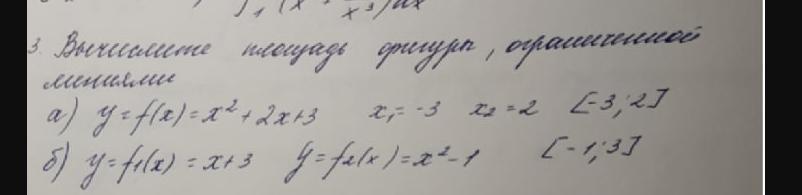 ∫₁ (x + 1/x³) dx
3. Вычислите площадь фигуры, ограниченной
линиями
а) y=f(x)=x²+2x+3 x₁=-3 x₂=2 [-3;2]
б) y=f₁(x)=x+3 y=f₂(x)=x²-1 [-1;3]